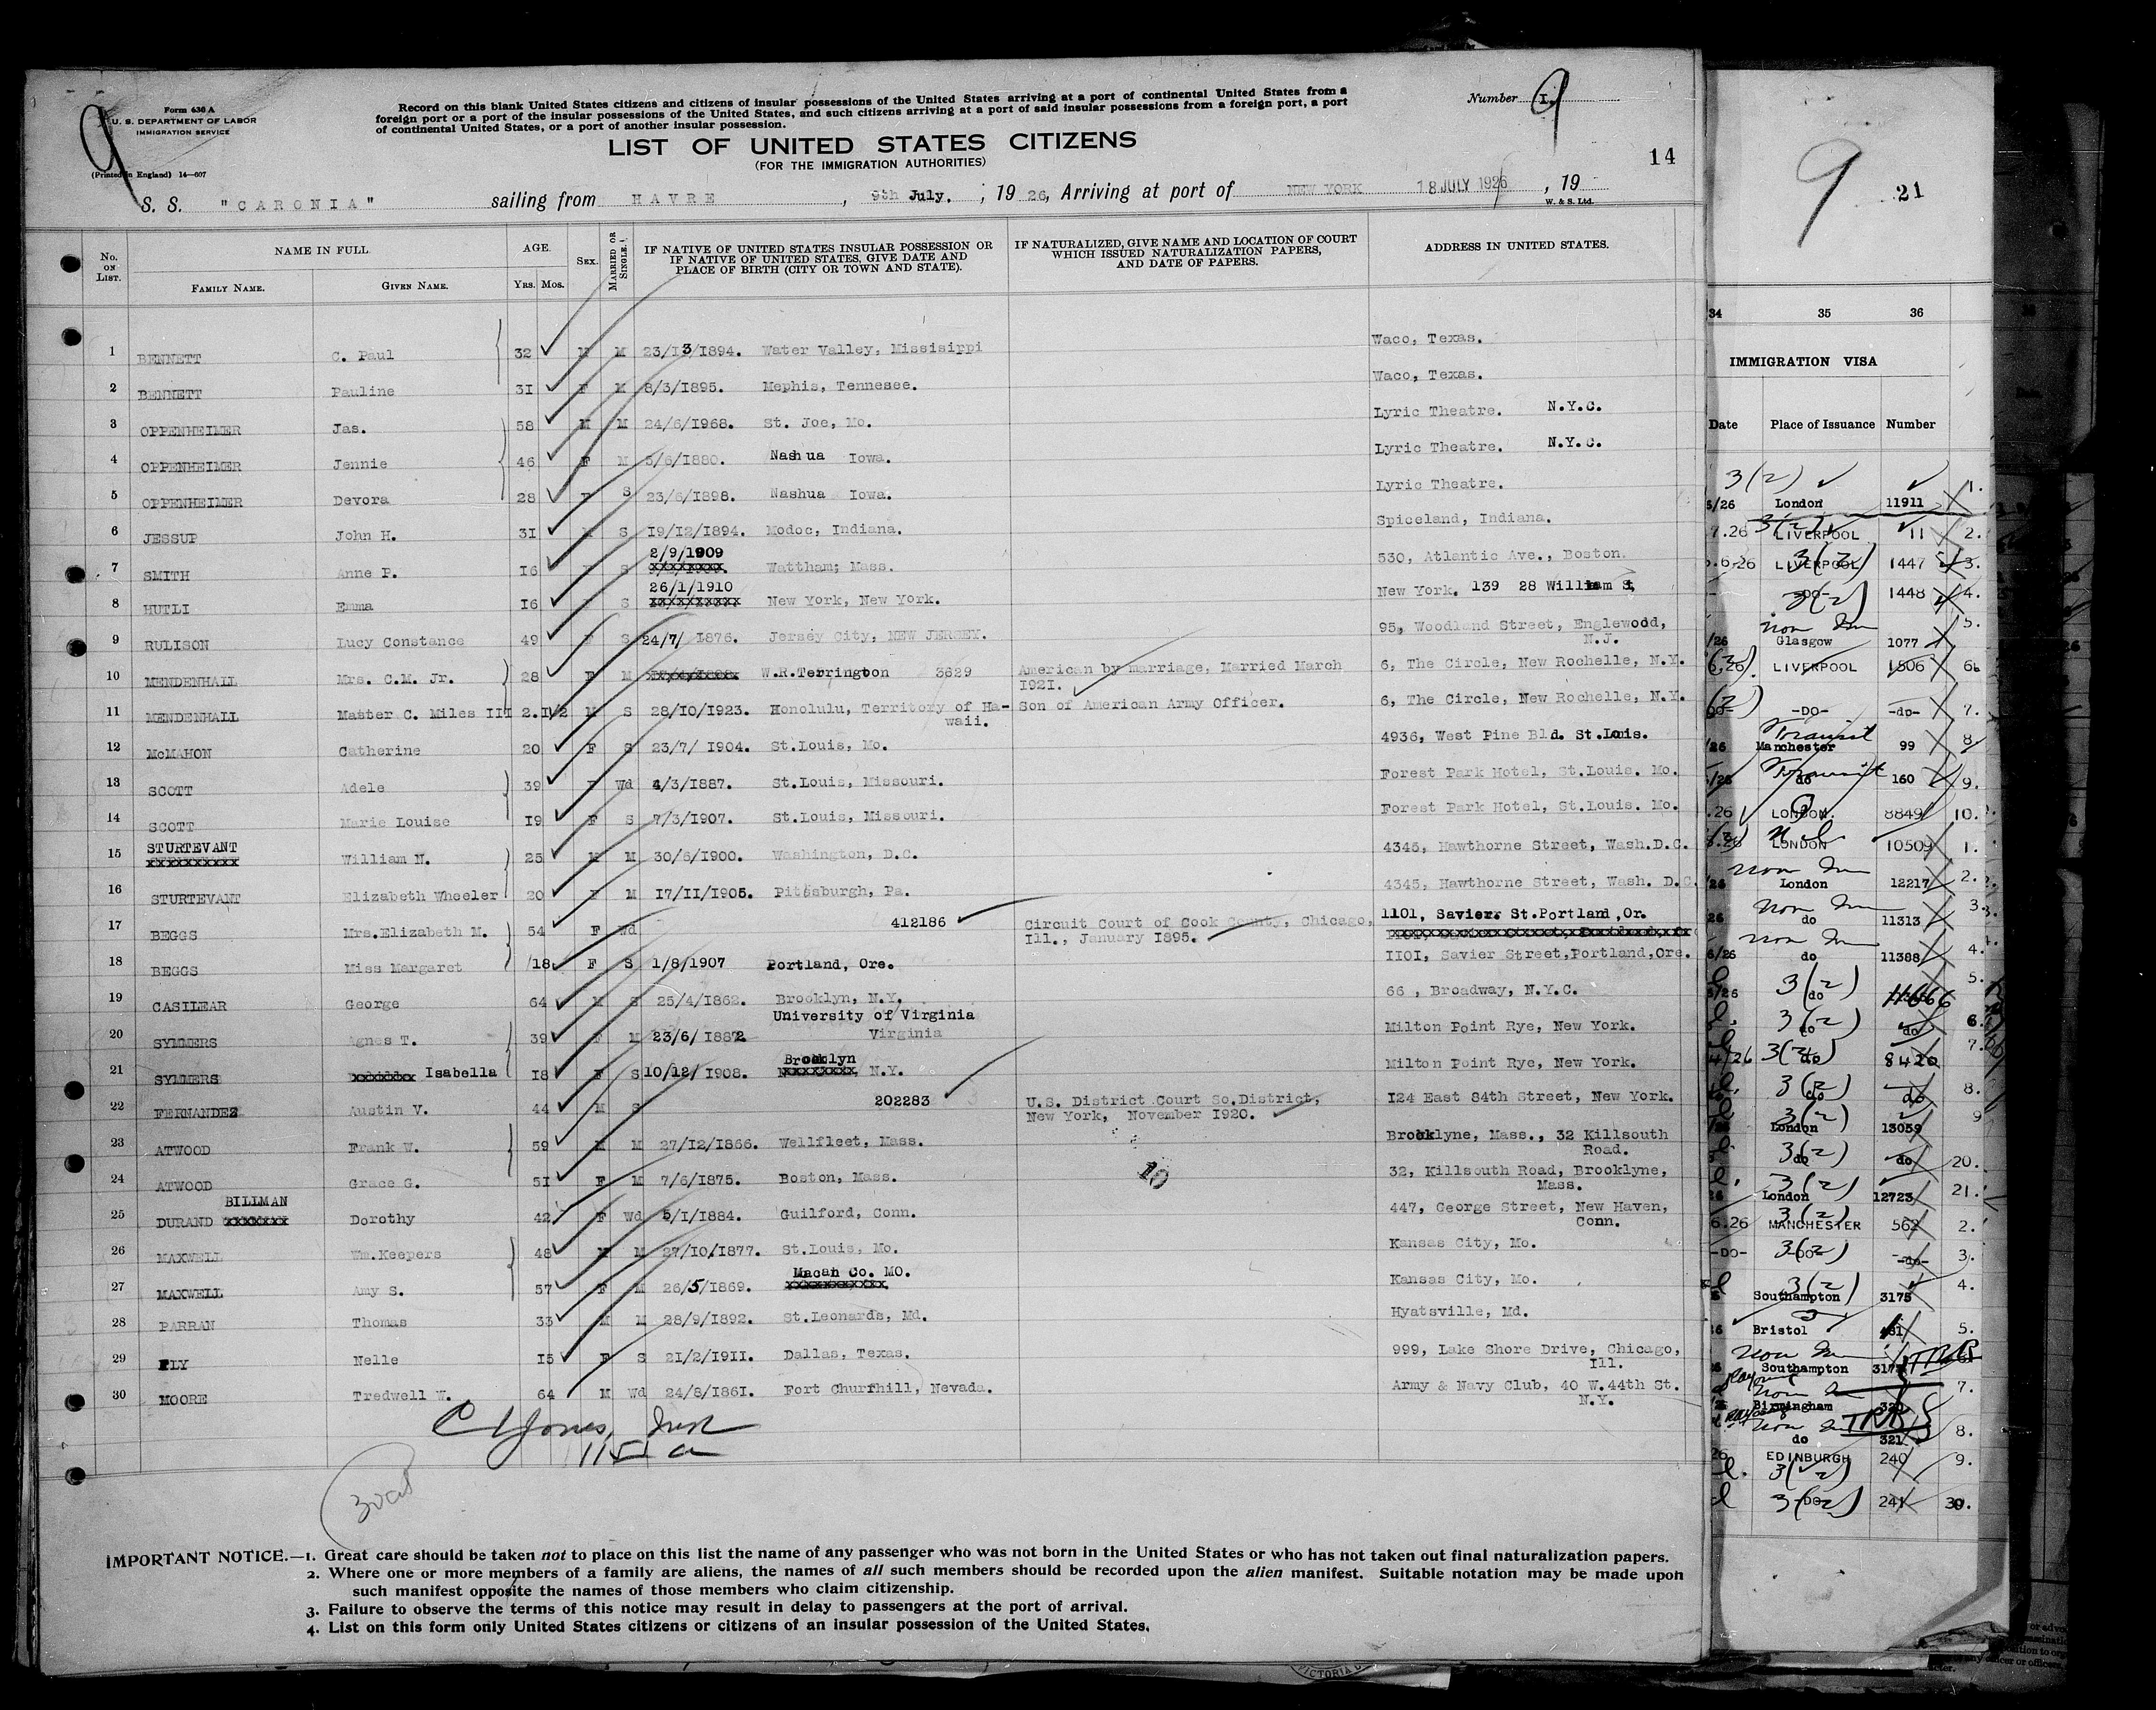 Form 630 A
U. S. DEPARTMENT OF LABOR
IMMIGRATION SERVICE
(Printed in England) 14—607
9
Record on this blank United States citizens and citizens of insular possessions of the United States arriving at a port of continental United States from a
foreign port or a port of the insular possessions of the United States, and such citizens arriving at a port of said insular possessions from a foreign port, a port
of continental United States, or a port of another insular possession.
Number I.
9
LIST OF UNITED STATES CITIZENS
(FOR THE IMMIGRATION AUTHORITIES)
14
S. S. "CARONIA" sailing from HAVRE, 9th July, 1926, Arriving at port of NEW YORK 18 JULY 1926, 19
W. & S. Ltd.
No. ON LIST. NAME IN FULL. AGE. SEX. MARRIED OR SINGLE. IF NATIVE OF UNITED STATES INSULAR POSSESSION OR IF NATIVE OF UNITED STATES, GIVE DATE AND PLACE OF BIRTH (CITY OR TOWN AND STATE). IF NATURALIZED, GIVE NAME AND LOCATION OF COURT WHICH ISSUED NATURALIZATION PAPERS, AND DATE OF PAPERS. ADDRESS IN UNITED STATES.
FAMILY NAME. GIVEN NAME. YRS. MOS.
1 BENNETT C. Paul 32 M M 23/13/1894. Water Valley, Missisippi Waco, Texas.
2 BENNETT Pauline 31 F M 8/3/1895. Mephis, Tennesee. Waco, Texas.
3 OPPENHEIMER Jas. 58 M M 24/6/1968. St. Joe, Mo. Lyric Theatre. N.Y.C.
4 OPPENHEIMER Jennie 46 F M 5/6/1880. Nashua Iowa. Lyric Theatre. N.Y.C.
5 OPPENHEIMER Devora 28 F S 23/6/1898. Nashua Iowa. Lyric Theatre.
6 JESSUP John H. 31 M S 19/12/1894. Modoc, Indiana. Spiceland, Indiana.
7 SMITH Anne P. 16 F S 2/9/1909 Wattham; Mass. 530, Atlantic Ave., Boston.
8 HUTLI Emma 16 F S 26/1/1910 New York, New York. New York. 139 28 William S
9 RULISON Lucy Constance 49 F S 24/7/ 1876. Jersey City, NEW JERSEY. 95, Woodland Street, Englewood, N.J.
10 MENDENHALL Mrs. C.M. Jr. 28 F M W.R.Terrington 3629 American by marriage, Married March 1921. 6, The Circle, New Rochelle, N.Y.
11 MENDENHALL Master C. Miles III 2.1/2 M S 28/10/1923. Honolulu, Territory of Hawaii. Son of American Army Officer. 6, The Circle, New Rochelle, N.Y.
12 McMAHON Catherine 20 F S 23/7/ 1904. St.Louis, Mo. 4936, West Pine Bld. St.Louis.
13 SCOTT Adele 39 F Wd 4/3/1887. St.Louis, Missouri. Forest Park Hotel, St.Louis. Mo.
14 SCOTT Marie Louise 19 F S 7/3/1907. St.Louis, Missouri. Forest Park Hotel, St.Louis. Mo.
15 STURTEVANT William N. 25 M M 30/6/1900. Washington, D.C. 4345, Hawthorne Street, Wash.D.C.
16 STURTEVANT Elizabeth Wheeler 20 F M 17/11/1905. Pittsburgh, Pa. 4345, Hawthorne Street, Wash. D.C.
17 BEGGS Mrs.Elizabeth M. 54 F Wd 412186 Circuit Court of Cook County, Chicago, Ill., January 1895. 1101, Saviers St.Portland,Or.
18 BEGGS Miss Margaret 18 F S 1/8/1907 Portland, Ore. 1101, Savier Street,Portland,Ore.
19 CASILEAR George 64 M S 25/4/1862. Brooklyn, N.Y. 66 , Broadway, N.Y.C.
20 SYMMERS Agnes T. 39 F M 23/6/ 1887. University of Virginia Virginia Milton Point Rye, New York.
21 SYMMERS Isabella 18 F S 10/12/ 1908. Brooklyn N.Y. Milton Point Rye, New York.
22 FERNANDEZ Austin V. 44 M S 202283 U.S. District Court So.District, New York, November 1920. 124 East 84th Street, New York.
23 ATWOOD Frank W. 59 M M 27/12/1866. Wellfleet, Mass. Brooklyne, Mass., 32 Killsouth Road.
24 ATWOOD Grace G. 51 F M 7/6/1875. Boston, Mass. 32, Killsouth Road, Brooklyne, Mass.
10
25 DURAND BILLMAN Dorothy 42 F Wd 5/1/1884. Guilford, Conn. 447, George Street, New Haven, Conn.
26 MAXWELL Wm.Keepers 48 M M 27/10/1877. St.Louis, Mo. Kansas City, Mo.
27 MAXWELL Amy S. 57 F M 26/5/1869. Macan Co. MO. Kansas City, Mo.
28 PARRAN Thomas 33 M M 28/9/1892. St.Leonards, Md. Hyatsville, Md.
29 FLY Nelle 15 F S 21/2/1911. Dallas, Texas. 999, Lake Shore Drive, Chicago, Ill.
30 MOORE Tredwell W. 64 M Wd 24/8/1861. Fort Churfhill, Nevada. Army & Navy Club, 40 W.44th St. N.Y.
IMPORTANT NOTICE.—1. Great care should be taken not to place on this list the name of any passenger who was not born in the United States or who has not taken out final naturalization papers.
2. Where one or more members of a family are aliens, the names of all such members should be recorded upon the alien manifest. Suitable notation may be made upon
such manifest opposite the names of those members who claim citizenship.
3. Failure to observe the terms of this notice may result in delay to passengers at the port of arrival.
4. List on this form only United States citizens or citizens of an insular possession of the United States.
9 21
34 35 36
IMMIGRATION VISA
Date Place of Issuance Number
3(2)
5/26 London 11911 1.
7.26 LIVERPOOL 11 2.
6.26 LIVERPOOL 1447 3.
-DO- 1448 4.
/26 Glasgow 1077 5.
6.26 LIVERPOOL 1506 6.
-DO- -do- 7.
Transit
/26 Manchester 99 8
Transit
/26 do 160 9.
.26 LONDON. 8849 10.
.26 LONDON 10509 1.
/26 London 12217 2.
26 do 11313 3.
6/26 do 11388 4.
5/26 3(2) do 11666 5.
3(2) do do 6.
4/26 3(2) do 8420 7.
3(2) do do 8.
3(2) London 13059 9
3(2) do do 20.
26 3(2) London 12723 21.
6.26 3(2) MANCHESTER 562 2.
-DO- 3(2) -DO- -do- 3.
3(2) Southampton 3175 4.
Bristol 5.
Southampton
Birmingham 320 7.
do 321 8.
26 EDINBURGH 240 9.
3(2)
3(2) -DO- 241 30.